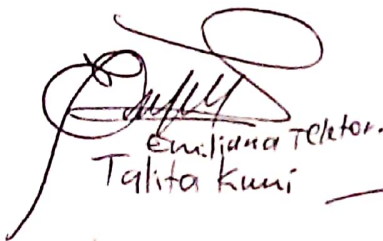 Emiliana Teletor.
Talita Kumi